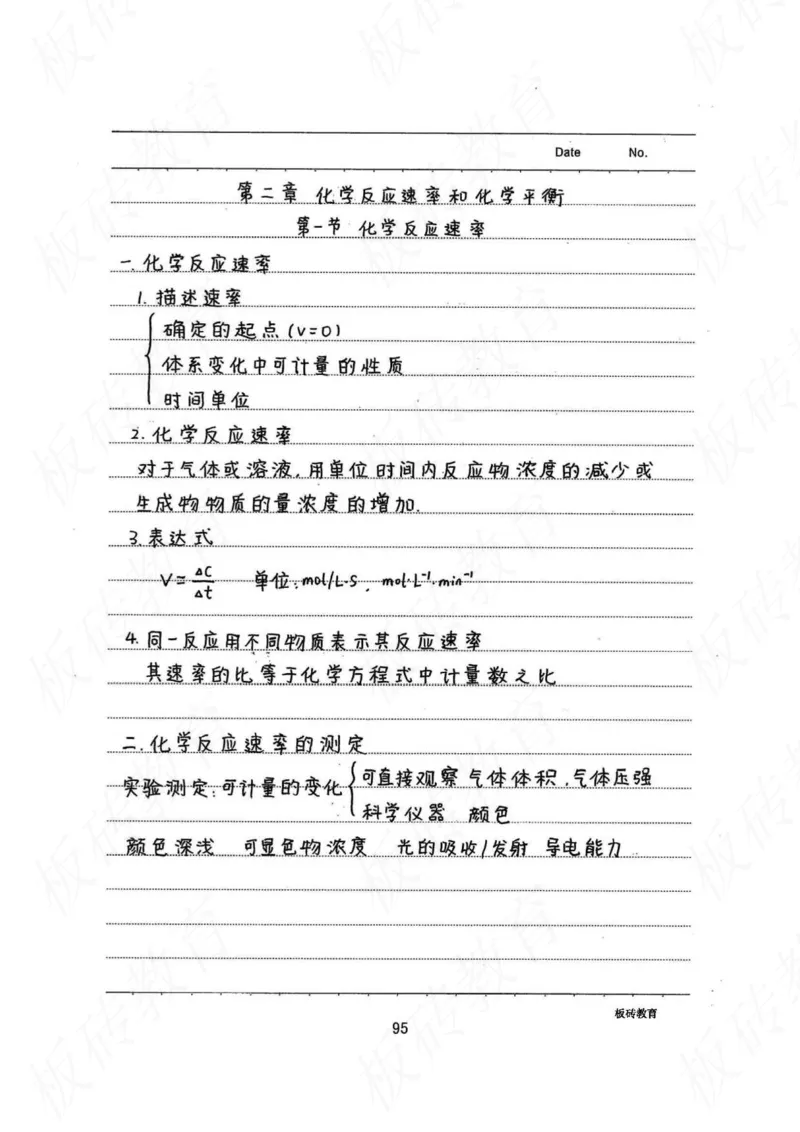 Date No.
第二章 化学反应速率和化学平衡
第一节 化学反应速率
一.化学反应速率
1. 描述速率
确定的起点(v=0)
体系变化中可计量的性质
时间单位
2. 化学反应速率
对于气体或溶液,用单位时间内反应物浓度的减少或
生成物物质的量浓度的增加.
3.表达式
V = ΔC/Δt 单位:mol/L·s , mol·L⁻¹·min⁻¹
4. 同一反应用不同物质表示其反应速率
其速率的比等于化学方程式中计量数之比
二.化学反应速率的测定
实验测定:可计量的变化 可直接观察 气体体积,气体压强
科学仪器 颜色
颜色深浅 可显色物浓度 光的吸收/发射 导电能力
板砖教育
95